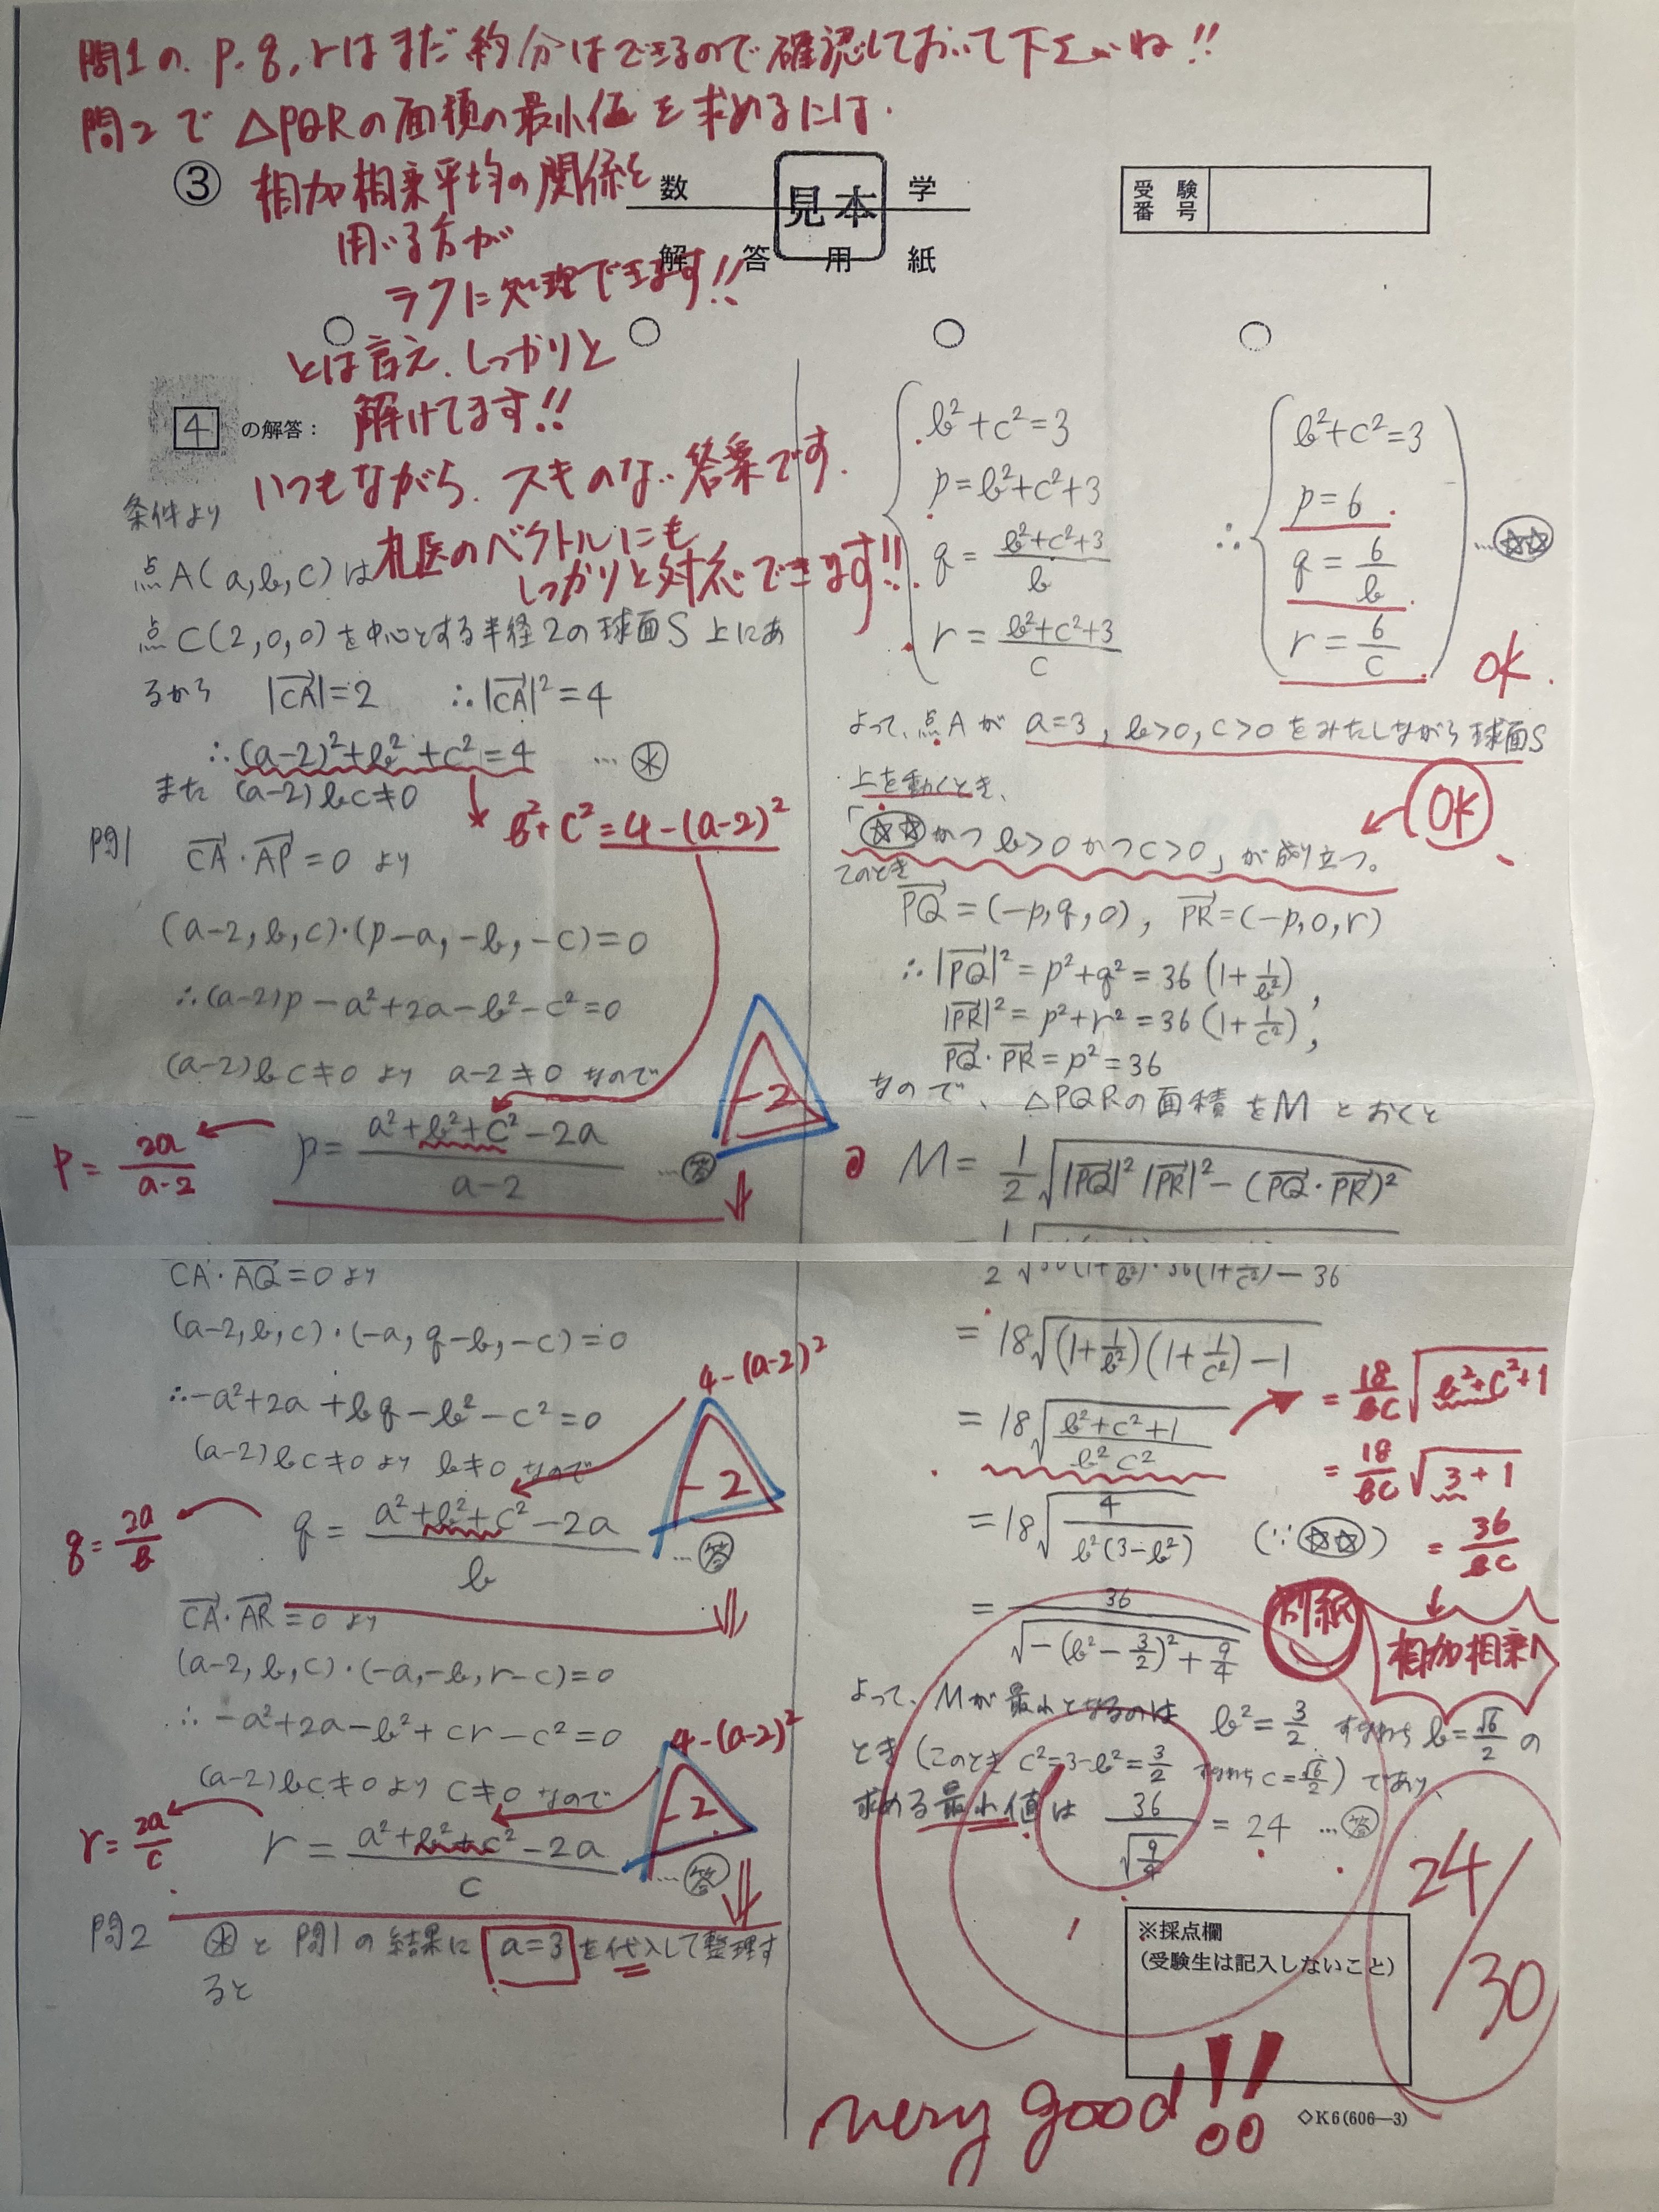 問1の p.q,rはまだ約分はできるので確認しておいて下さいね!!
問2で △PQRの面積の最小値を求めるには.
③ 相加相乗平均の関係を
用いる方が
ラクに処理できます!!
とは言え、しっかりと
解けてます!!
いつもながら、スキのない答案です.
札医のベクトルにも
しっかりと対応できます!!
数学
見本
解答用紙
受験番号
4 の解答：
条件より
点A(a,b,c)は
点C(2,0,0)を中心とする半径2の球面S上にあ
るから |CA|=2 ∴|CA|²=4
∴(a-2)²+b²+c²=4 …㊍
また (a-2)bc≠0
b²+c²=4-(a-2)²
問1 CA・AP=0 より
(a-2,b,c)・(p-a,-b,-c)=0
∴(a-2)p-a²+2a-b²-c²=0
(a-2)bc≠0 より a-2≠0 なので
p=(a²+b²+c²-2a)/(a-2) …答
p=2a/(a-2)
-2
CA・AQ=0 より
(a-2,b,c)・(-a,q-b,-c)=0
∴-a²+2a+bq-b²-c²=0
4-(a-2)²
(a-2)bc≠0 より b≠0 なので
q=(a²+b²+c²-2a)/b …答
q=2a/b
-2
CA・AR=0 より
(a-2,b,c)・(-a,-b,r-c)=0
∴-a²+2a-b²+cr-c²=0
4-(a-2)²
(a-2)bc≠0 より c≠0 なので
r=(a²+b²+c²-2a)/c …答
r=2a/c
-2
問2 ＊と問1の結果に a=3 を代入して整理す
ると
b²+c²=3
p=b²+c²+3
q=(b²+c²+3)/b
r=(b²+c²+3)/c
∴ b²+c²=3
p=6
q=6/b …☆☆
r=6/c
OK.
よって、点Aが a=3, b>0, c>0 をみたしながら球面S
上を動くとき、
OK
「☆☆かつ b>0 かつ c>0」が成り立つ。
このとき
PQ=(-p,q,0), PR=(-p,0,r)
∴|PQ|²=p²+q²=36(1+1/b²),
|PR|²=p²+r²=36(1+1/c²),
PQ・PR=p²=36
なので、△PQRの面積をMとおくと
M=1/2√(|PQ|²|PR|²-(PQ・PR)²)
=18√((1+1/b²)(1+1/c²)-1)
=18√((b²+c²+1)/(b²c²))
=18√(4/(b²(3-b²))) (∵☆☆)
=36/√(-(b²-3/2)²+9/4)
=18/bc√(b²+c²+1)
=18/bc√(3+1)
=36/bc
別紙
相加相乗へ
よって、Mが最小となるのは b²=3/2 すなわち b=√6/2 の
とき(このとき c²=3-b²=3/2 すなわち c=√6/2)であり、
求める最小値は 36/√(9/4) = 24 …答
24/30
※採点欄
(受験生は記入しないこと)
very good!!
◇K6(606—3)